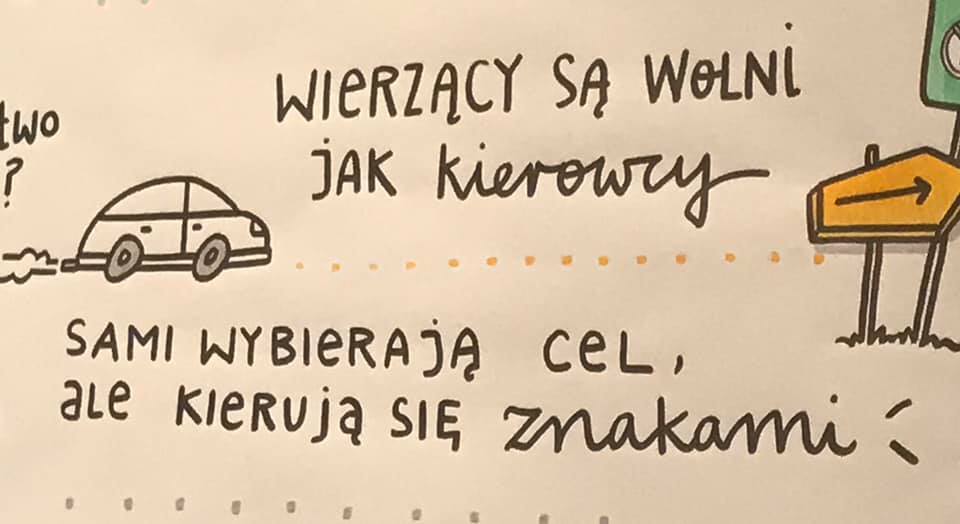 two
?
WIERZĄCY SĄ WOLNI
JAK kierowcy
SAMI WYBIERAJĄ CEL,
ale KIERUJĄ SIĘ znakami